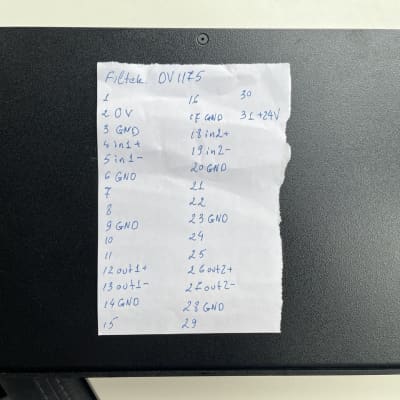 Filtek OV1175
1
2 0V
3 GND
4 in1+
5 in1-
6 GND
7
8
9 GND
10
11
12 out1+
13 out1-
14 GND
15
16
17 GND
18 in2+
19 in2-
20 GND
21
22
23 GND
24
25
26 out2+
27 out2-
28 GND
29
30
31 +24V